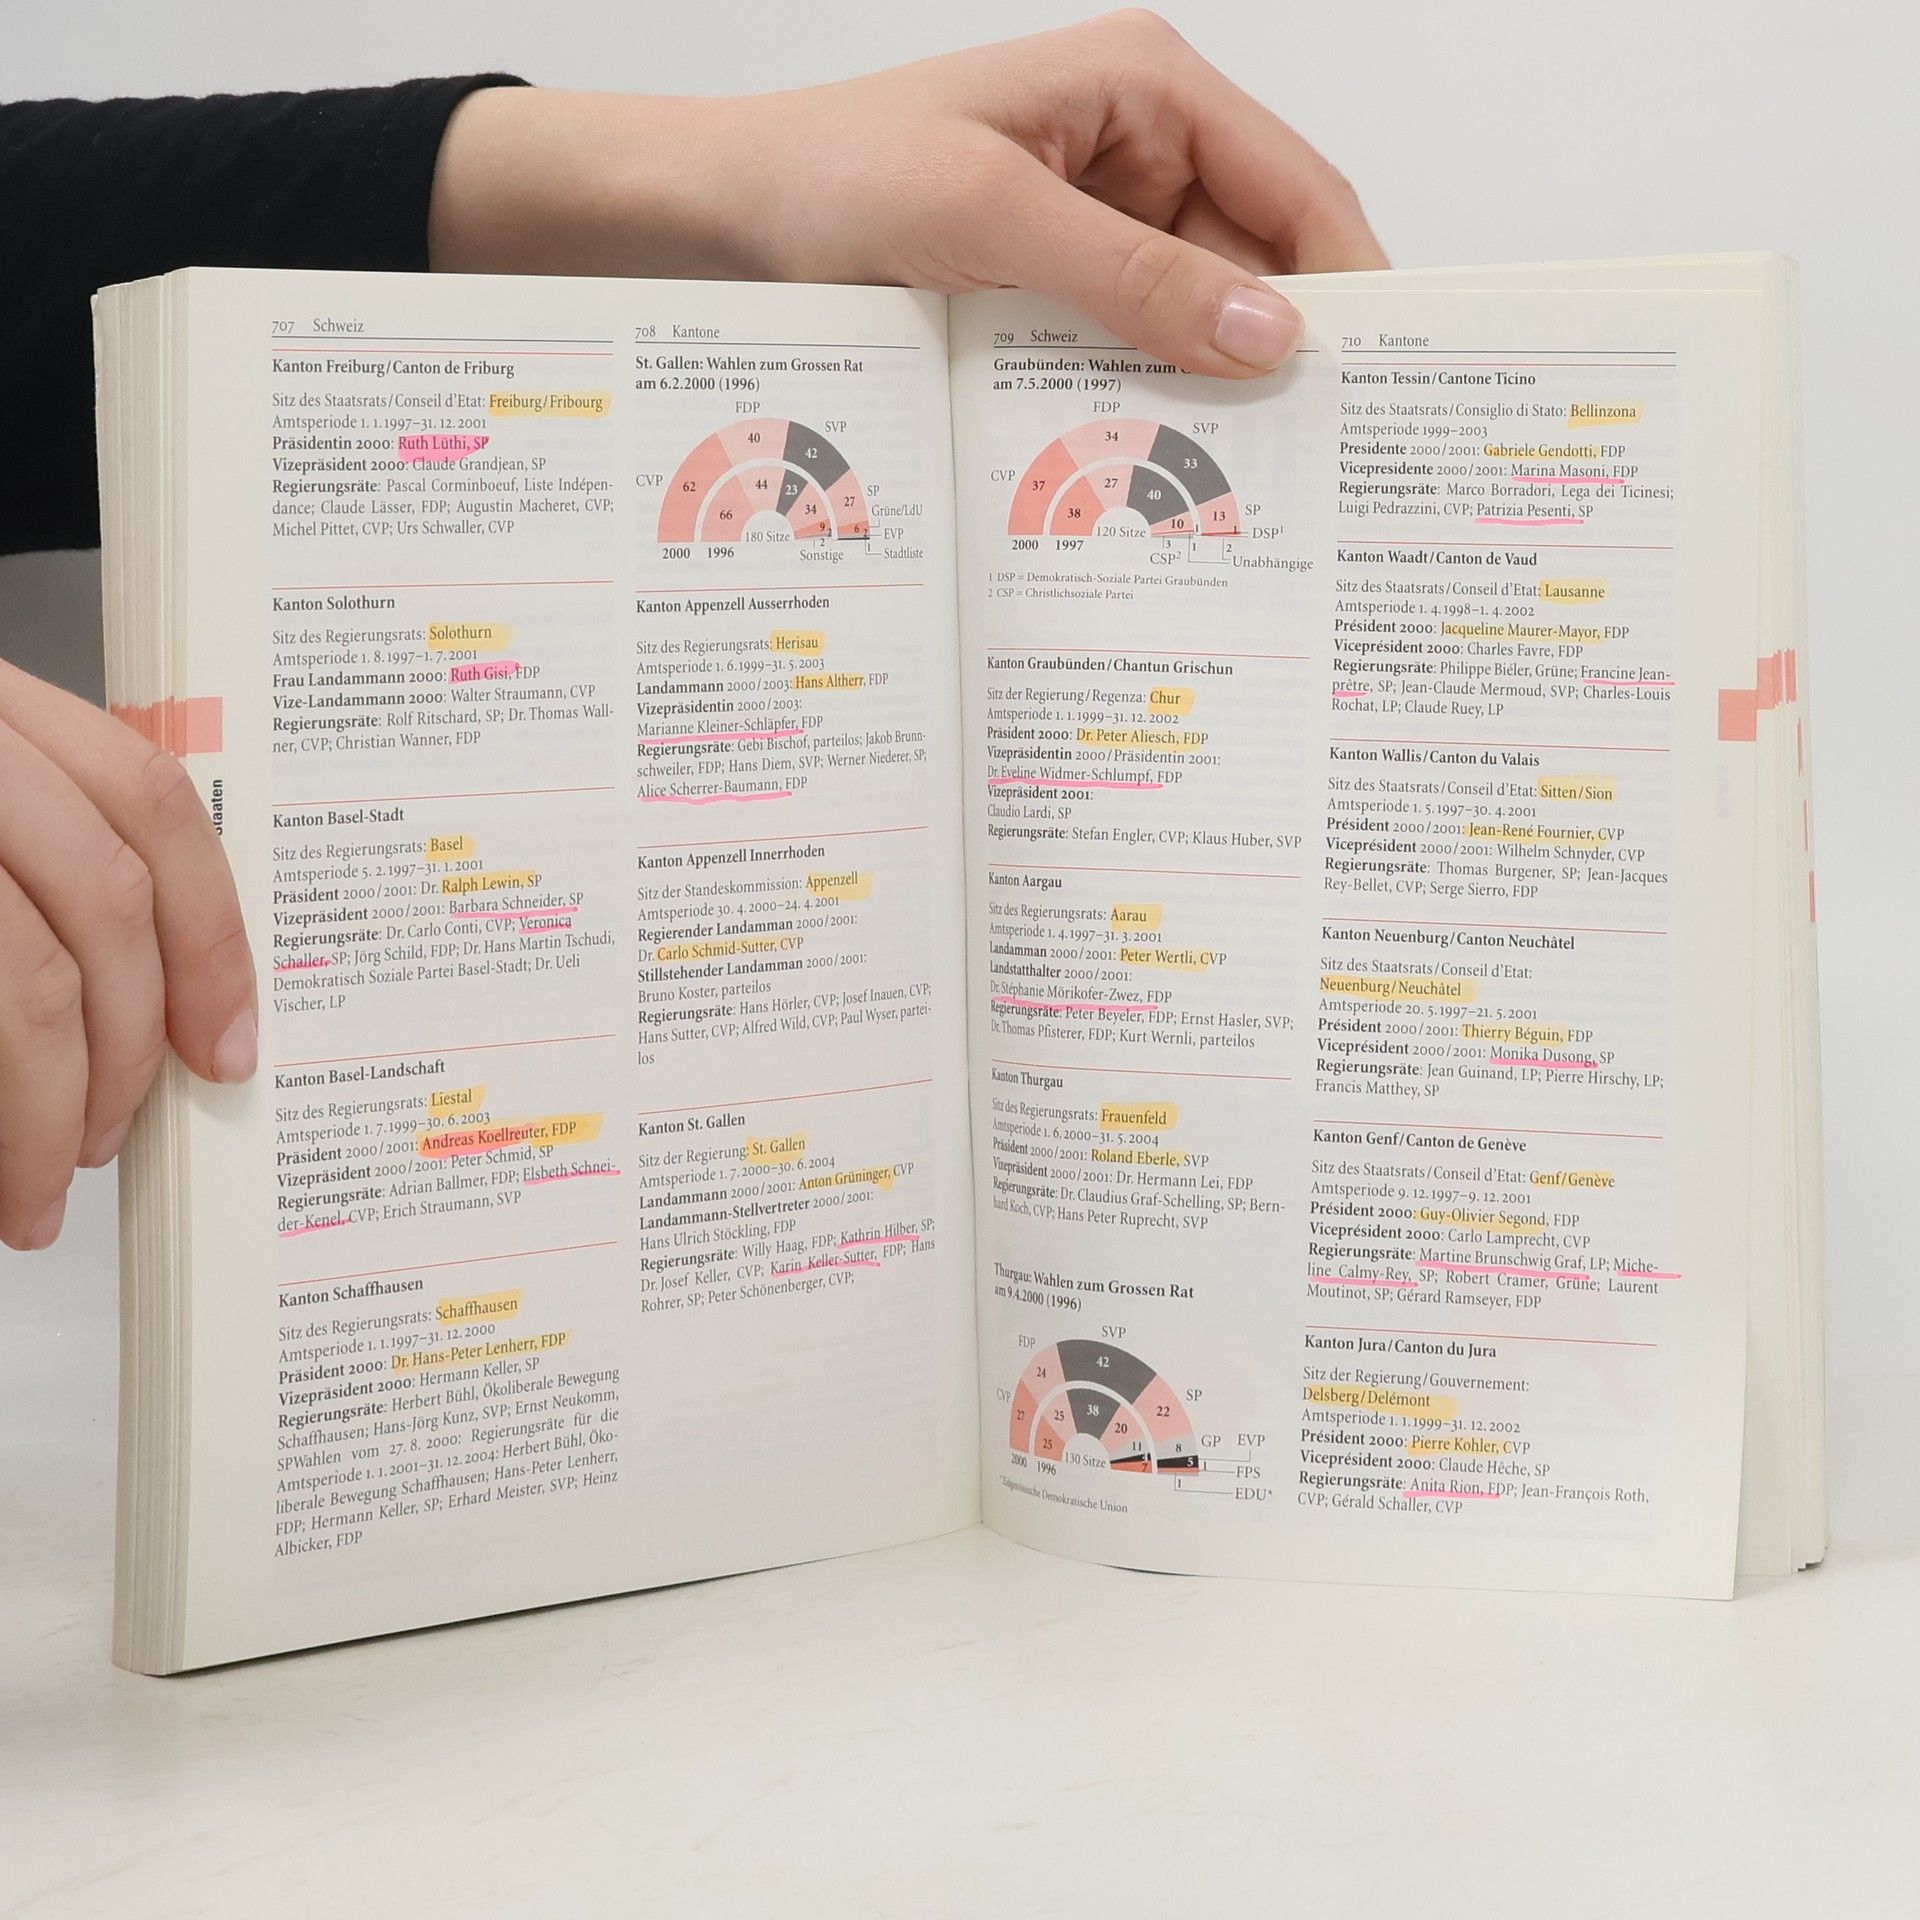 707 Schweiz
Kanton Freiburg/Canton de Friburg
Sitz des Staatsrats/Conseil d'Etat: Freiburg/Fribourg
Amtsperiode 1. 1. 1997–31. 12. 2001
Präsidentin 2000: Ruth Lüthi, SP
Vizepräsident 2000: Claude Grandjean, SP
Regierungsräte: Pascal Corminboeuf, Liste Indépen-
dance; Claude Lässer, FDP; Augustin Macheret, CVP;
Michel Pittet, CVP; Urs Schwaller, CVP
Kanton Solothurn
Sitz des Regierungsrats: Solothurn
Amtsperiode 1. 8. 1997–1. 7. 2001
Frau Landammann 2000: Ruth Gisi, FDP
Vize-Landammann 2000: Walter Straumann, CVP
Regierungsräte: Rolf Ritschard, SP; Dr. Thomas Wall-
ner, CVP; Christian Wanner, FDP
Kanton Basel-Stadt
Sitz des Regierungsrats: Basel
Amtsperiode 5. 2. 1997–31. 1. 2001
Präsident 2000/2001: Dr. Ralph Lewin, SP
Vizepräsident 2000/2001: Barbara Schneider, SP
Regierungsräte: Dr. Carlo Conti, CVP; Veronica
Schaller, SP; Jörg Schild, FDP; Dr. Hans Martin Tschudi,
Demokratisch Soziale Partei Basel-Stadt; Dr. Ueli
Vischer, LP
Kanton Basel-Landschaft
Sitz des Regierungsrats: Liestal
Amtsperiode 1. 7. 1999–30. 6. 2003
Präsident 2000/2001: Andreas Koellreuter, FDP
Vizepräsident 2000/2001: Peter Schmid, SP
Regierungsräte: Adrian Ballmer, FDP; Elsbeth Schnei-
der-Kenel, CVP; Erich Straumann, SVP
Kanton Schaffhausen
Sitz des Regierungsrats: Schaffhausen
Amtsperiode 1. 1. 1997–31. 12. 2000
Präsident 2000: Dr. Hans-Peter Lenherr, FDP
Vizepräsident 2000: Hermann Keller, SP
Regierungsräte: Herbert Bühl, Ökoliberale Bewegung
Schaffhausen; Hans-Jörg Kunz, SVP; Ernst Neukomm,
SPWahlen vom 27. 8. 2000: Regierungsräte für die
Amtsperiode 1. 1. 2001–31. 12. 2004: Herbert Bühl, Öko-
liberale Bewegung Schaffhausen; Hans-Peter Lenherr,
FDP; Hermann Keller, SP; Erhard Meister, SVP; Heinz
Albicker, FDP
Staaten
708 Kantone
St. Gallen: Wahlen zum Grossen Rat
am 6.2.2000 (1996)
FDP
SVP
CVP
SP
Grüne/LdU
EVP
Stadtliste
Sonstige
40
42
62
27
6
2
1
44
23
66
34
9
2
2
180 Sitze
2000 1996
Kanton Appenzell Ausserrhoden
Sitz des Regierungsrats: Herisau
Amtsperiode 1. 6. 1999–31. 5. 2003
Landammann 2000/2003: Hans Altherr, FDP
Vizepräsidentin 2000/2003:
Marianne Kleiner-Schläpfer, FDP
Regierungsräte: Gebi Bischof, parteilos; Jakob Brunn-
schweiler, FDP; Hans Diem, SVP; Werner Niederer, SP;
Alice Scherrer-Baumann, FDP
Kanton Appenzell Innerrhoden
Sitz der Standeskommission: Appenzell
Amtsperiode 30. 4. 2000–24. 4. 2001
Regierender Landamman 2000/2001:
Dr. Carlo Schmid-Sutter, CVP
Stillstehender Landamman 2000/2001:
Bruno Koster, parteilos
Regierungsräte: Hans Hörler, CVP; Josef Inauen, CVP;
Hans Sutter, CVP; Alfred Wild, CVP; Paul Wyser, partei-
los
Kanton St. Gallen
Sitz der Regierung: St. Gallen
Amtsperiode 1. 7. 2000–30. 6. 2004
Landammann 2000/2001: Anton Grüninger, CVP
Landammann-Stellvertreter 2000/2001:
Hans Ulrich Stöckling, FDP
Regierungsräte: Willy Haag, FDP; Kathrin Hilber, SP;
Dr. Josef Keller, CVP; Karin Keller-Sutter, FDP; Hans
Rohrer, SP; Peter Schönenberger, CVP;
709 Schweiz
Graubünden: Wahlen zum
am 7.5.2000 (1997)
FDP
SVP
CVP
SP
DSP¹
Unabhängige
CSP²
34
33
37
13
1
2
27
40
38
10
1
3
1
120 Sitze
2000 1997
1 DSP = Demokratisch-Soziale Partei Graubünden
2 CSP = Christlichsoziale Partei
Kanton Graubünden/Chantun Grischun
Sitz der Regierung/Regenza: Chur
Amtsperiode 1. 1. 1999–31. 12. 2002
Präsident 2000: Dr. Peter Aliesch, FDP
Vizepräsidentin 2000/Präsidentin 2001:
Dr. Eveline Widmer-Schlumpf, FDP
Vizepräsident 2001:
Claudio Lardi, SP
Regierungsräte: Stefan Engler, CVP; Klaus Huber, SVP
Kanton Aargau
Sitz des Regierungsrats: Aarau
Amtsperiode 1. 4. 1997–31. 3. 2001
Landamman 2000/2001: Peter Wertli, CVP
Landstatthalter 2000/2001:
Dr. Stéphanie Mörikofer-Zwez, FDP
Regierungsräte: Peter Beyeler, FDP; Ernst Hasler, SVP;
Dr. Thomas Pfisterer, FDP; Kurt Wernli, parteilos
Kanton Thurgau
Sitz des Regierungsrats: Frauenfeld
Amtsperiode 1. 6. 2000–31. 5. 2004
Präsident 2000/2001: Roland Eberle, SVP
Vizepräsident 2000/2001: Dr. Hermann Lei, FDP
Regierungsräte: Dr. Claudius Graf-Schelling, SP; Bern-
hard Koch, CVP; Hans Peter Ruprecht, SVP
Thurgau: Wahlen zum Grossen Rat
am 9.4.2000 (1996)
SVP
FDP
CVP
SP
GP
EVP
FPS
EDU*
42
24
22
27
8
5
1
1
38
25
20
25
11
7
130 Sitze
2000 1996
* Eidgenössische Demokratische Union
710 Kantone
Kanton Tessin/Cantone Ticino
Sitz des Staatsrats/Consiglio di Stato: Bellinzona
Amtsperiode 1999–2003
Presidente 2000/2001: Gabriele Gendotti, FDP
Vicepresidente 2000/2001: Marina Masoni, FDP
Regierungsräte: Marco Borradori, Lega dei Ticinesi;
Luigi Pedrazzini, CVP; Patrizia Pesenti, SP
Kanton Waadt/Canton de Vaud
Sitz des Staatsrats/Conseil d'Etat: Lausanne
Amtsperiode 1. 4. 1998–1. 4. 2002
Président 2000: Jacqueline Maurer-Mayor, FDP
Vicepräsident 2000: Charles Favre, FDP
Regierungsräte: Philippe Biéler, Grüne; Francine Jean-
prêtre, SP; Jean-Claude Mermoud, SVP; Charles-Louis
Rochat, LP; Claude Ruey, LP
Kanton Wallis/Canton du Valais
Sitz des Staatsrats/Conseil d'Etat: Sitten/Sion
Amtsperiode 1. 5. 1997–30. 4. 2001
Président 2000/2001: Jean-René Fournier, CVP
Vicepräsident 2000/2001: Wilhelm Schnyder, CVP
Regierungsräte: Thomas Burgener, SP; Jean-Jacques
Rey-Bellet, CVP; Serge Sierro, FDP
Kanton Neuenburg/Canton Neuchâtel
Sitz des Staatsrats/Conseil d'Etat:
Neuenburg/Neuchâtel
Amtsperiode 20. 5. 1997–21. 5. 2001
Président 2000/2001: Thierry Béguin, FDP
Viceprésident 2000/2001: Monika Dusong, SP
Regierungsräte: Jean Guinand, LP; Pierre Hirschy, LP;
Francis Matthey, SP
Kanton Genf/Canton de Genève
Sitz des Staatsrats/Conseil d'Etat: Genf/Genève
Amtsperiode 9. 12. 1997–9. 12. 2001
Président 2000: Guy-Olivier Segond, FDP
Viceprésident 2000: Carlo Lamprecht, CVP
Regierungsräte: Martine Brunschwig Graf, LP; Miche-
line Calmy-Rey, SP; Robert Cramer, Grüne; Laurent
Moutinot, SP; Gérard Ramseyer, FDP
Kanton Jura/Canton du Jura
Sitz der Regierung/Gouvernement:
Delsberg/Delémont
Amtsperiode 1. 1. 1999–31. 12. 2002
Président 2000: Pierre Kohler, CVP
Viceprésident 2000: Claude Hêche, SP
Regierungsräte: Anita Rion, FDP; Jean-François Roth,
CVP; Gérald Schaller, CVP